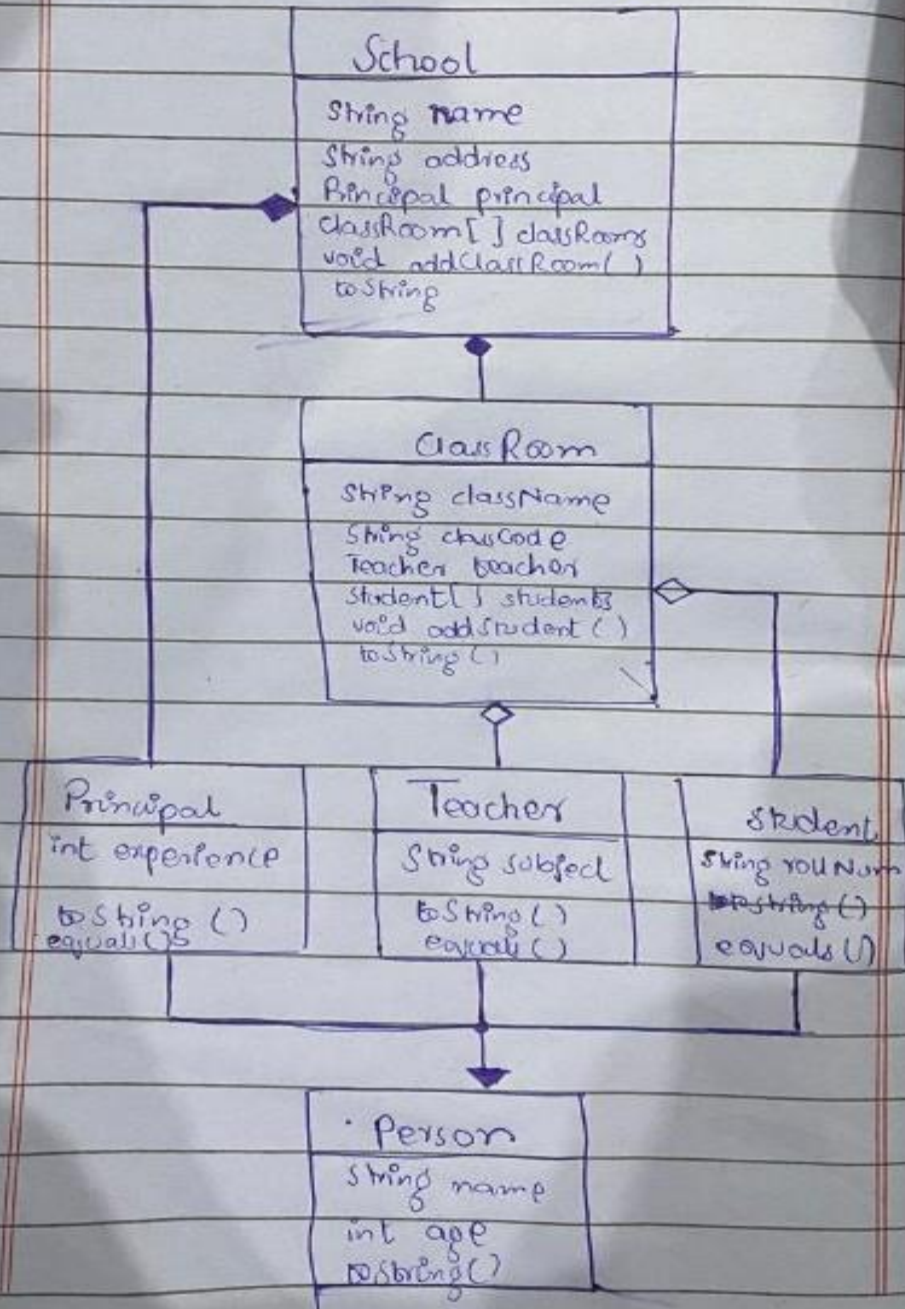 School
String name
String address
Principal principal
ClassRoom[] classRooms
void addClassRoom()
toString
ClassRoom
String className
String classCode
Teacher teacher
Student[] students
void addStudent()
toString()
Principal
int experience
toString()
equals()
Teacher
String subject
toString()
equals()
Student
String rollNum
toString()
equals()
Person
String name
int age
toString()